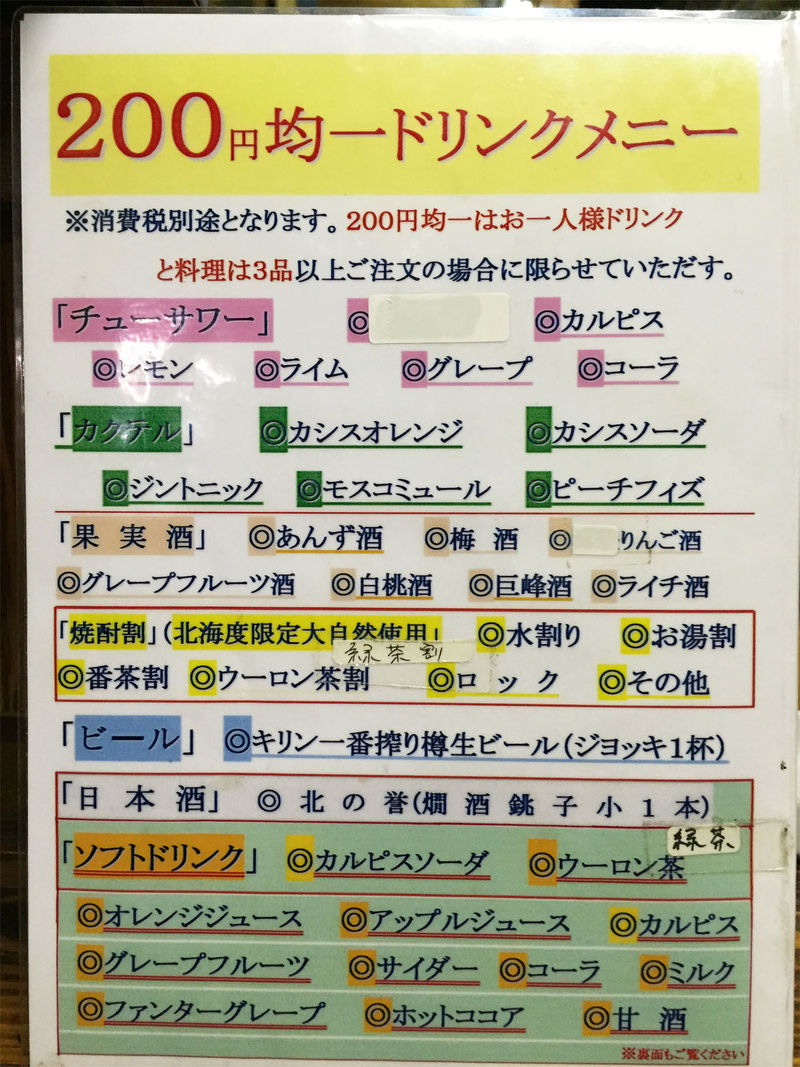 200円均一ドリンクメニー
※消費税別途となります。200円均一はお一人様ドリンク
と料理は3品以上ご注文の場合に限らせていただす。
「チューサワー」 ◎ ◎カルピス
◎レモン ◎ライム ◎グレープ ◎コーラ
「カクテル」 ◎カシスオレンジ ◎カシスソーダ
◎ジントニック ◎モスコミュール ◎ピーチフィズ
「果実酒」 ◎あんず酒 ◎梅酒 ◎りんご酒
◎グレープフルーツ酒 ◎白桃酒 ◎巨峰酒 ◎ライチ酒
「焼酎割」(北海度限定大自然使用」 ◎水割り ◎お湯割
緑茶割
◎番茶割 ◎ウーロン茶割 ◎ロック ◎その他
「ビール」 ◎キリン一番搾り樽生ビール(ジヨッキ1杯)
「日本酒」 ◎北の誉(燗酒銚子小1本)
緑茶
「ソフトドリンク」 ◎カルピスソーダ ◎ウーロン茶
◎オレンジジュース ◎アップルジュース ◎カルピス
◎グレープフルーツ ◎サイダー ◎コーラ ◎ミルク
◎ファンターグレープ ◎ホットココア ◎甘酒
※裏面もご覧ください